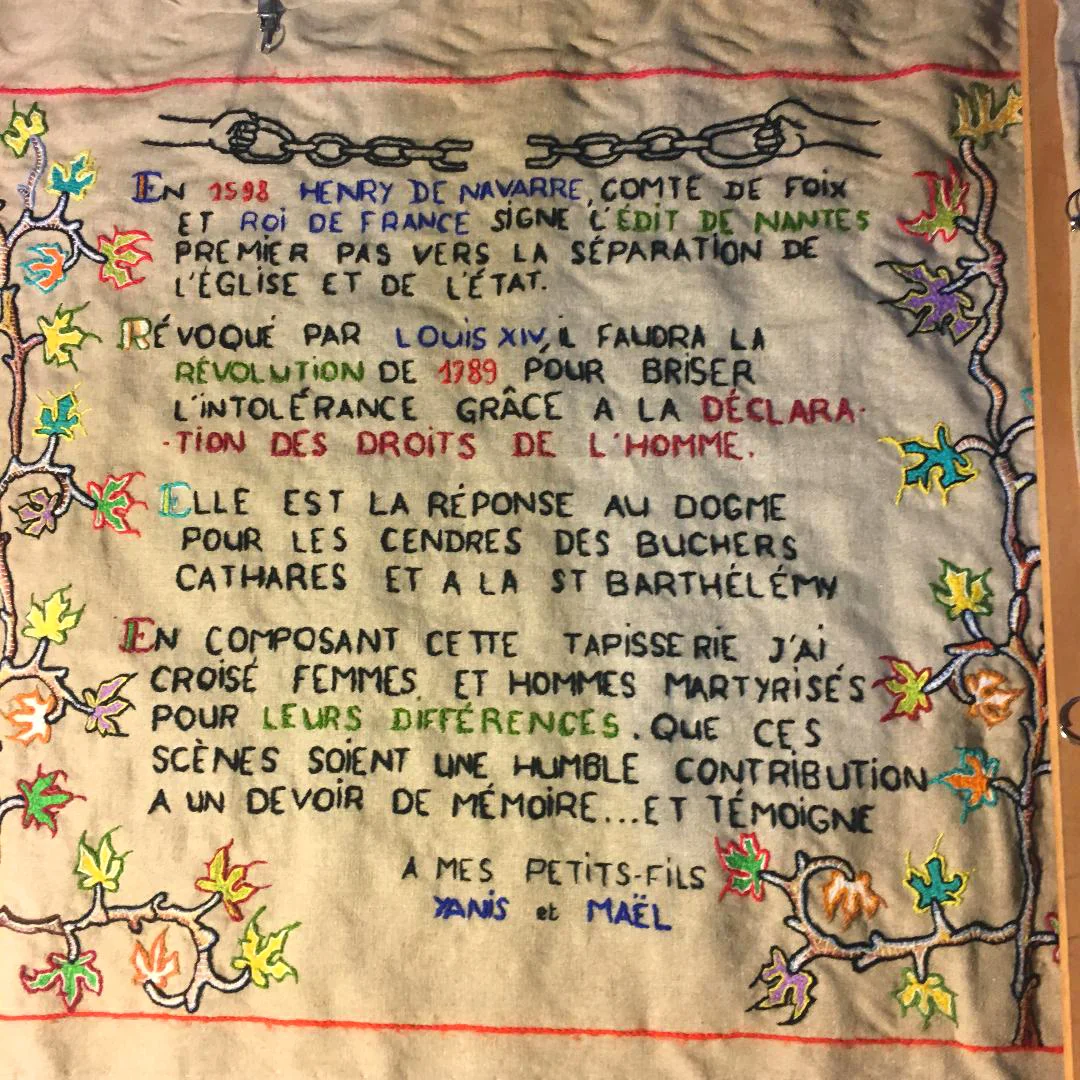 EN 1598 HENRY DE NAVARRE, COMTE DE FOIX
ET ROI DE FRANCE SIGNE L'ÉDIT DE NANTES
PREMIER PAS VERS LA SÉPARATION DE
L'ÉGLISE ET DE L'ÉTAT.
RÉVOQUÉ PAR LOUIS XIV, IL FAUDRA LA
RÉVOLUTION DE 1789 POUR BRISER
L'INTOLÉRANCE GRÂCE A LA DÉCLARA-
-TION DES DROITS DE L'HOMME.
ELLE EST LA RÉPONSE AU DOGME
POUR LES CENDRES DES BUCHERS
CATHARES ET A LA ST BARTHÉLÉMY
EN COMPOSANT CETTE TAPISSERIE J'AI
CROISÉ FEMMES ET HOMMES MARTYRISÉS
POUR LEURS DIFFÉRENCES. QUE CES
SCÈNES SOIENT UNE HUMBLE CONTRIBUTION
A UN DEVOIR DE MÉMOIRE...ET TÉMOIGNE
A MES PETITS-FILS
YANIS et MAËL